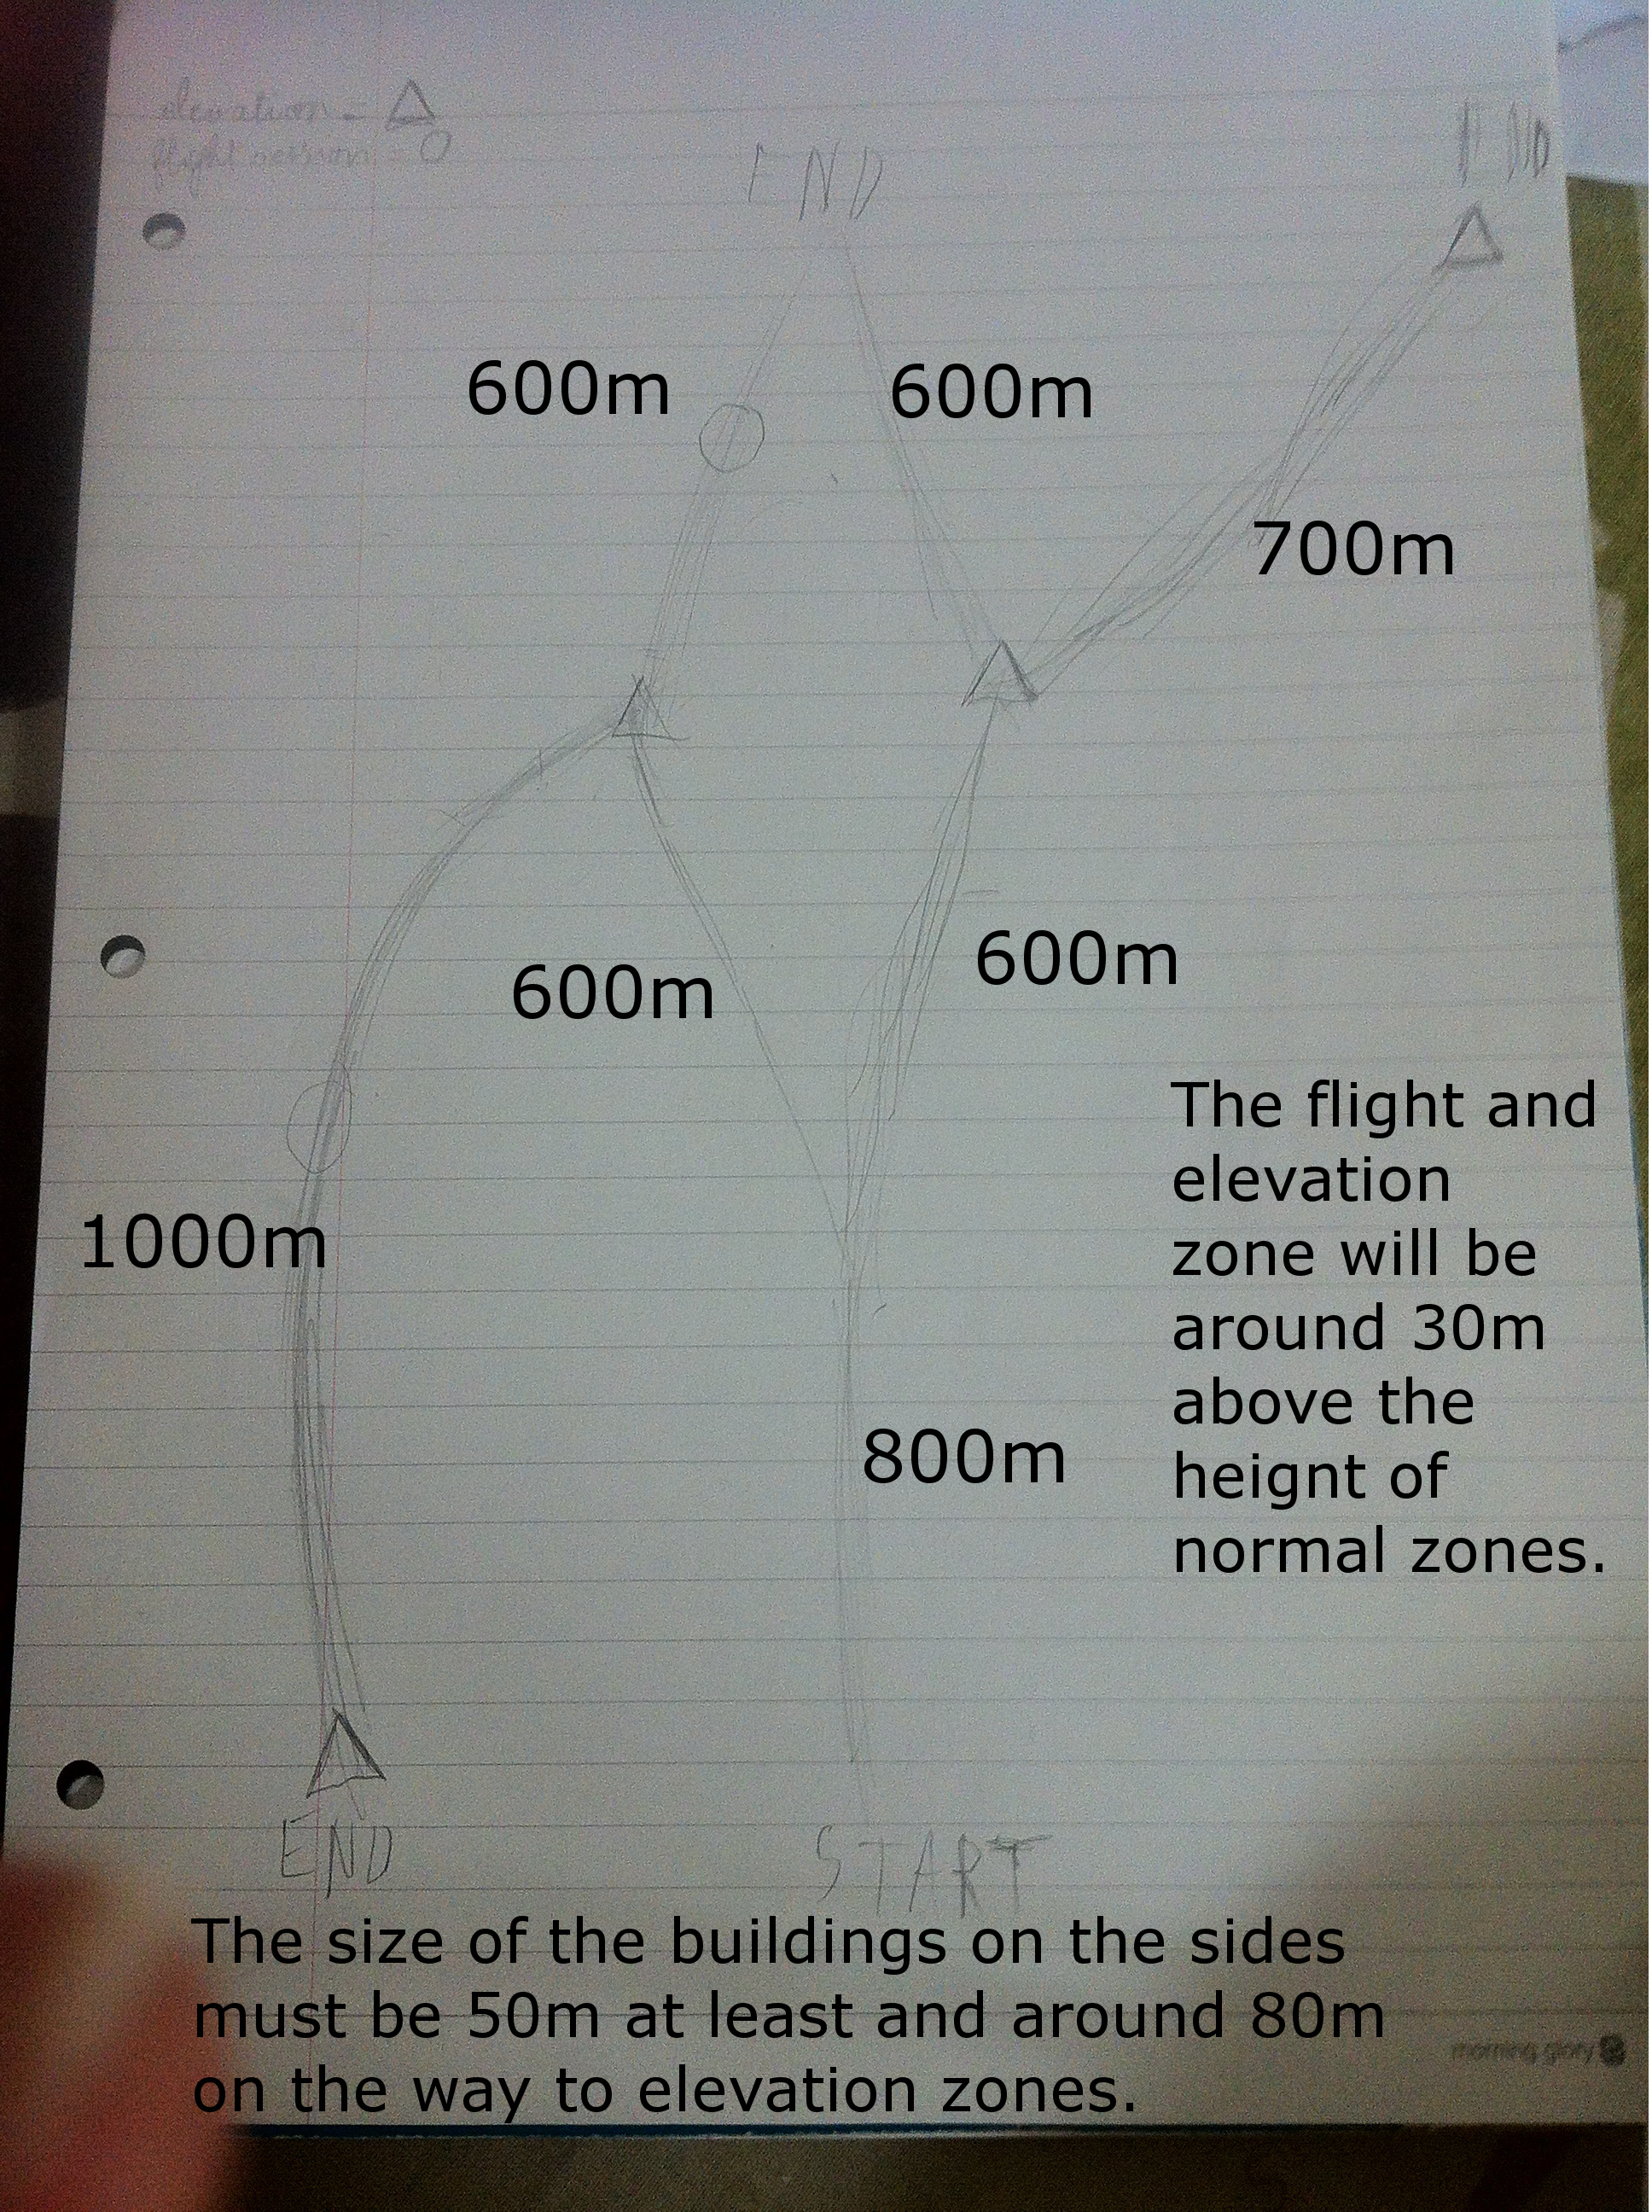 elevation = △
flight = O
END
END
600m
600m
700m
600m
600m
1000m
The flight and
elevation
zone will be
around 30m
above the
heignt of
normal zones.
800m
END
START
The size of the buildings on the sides
must be 50m at least and around 80m
on the way to elevation zones.
morning glory